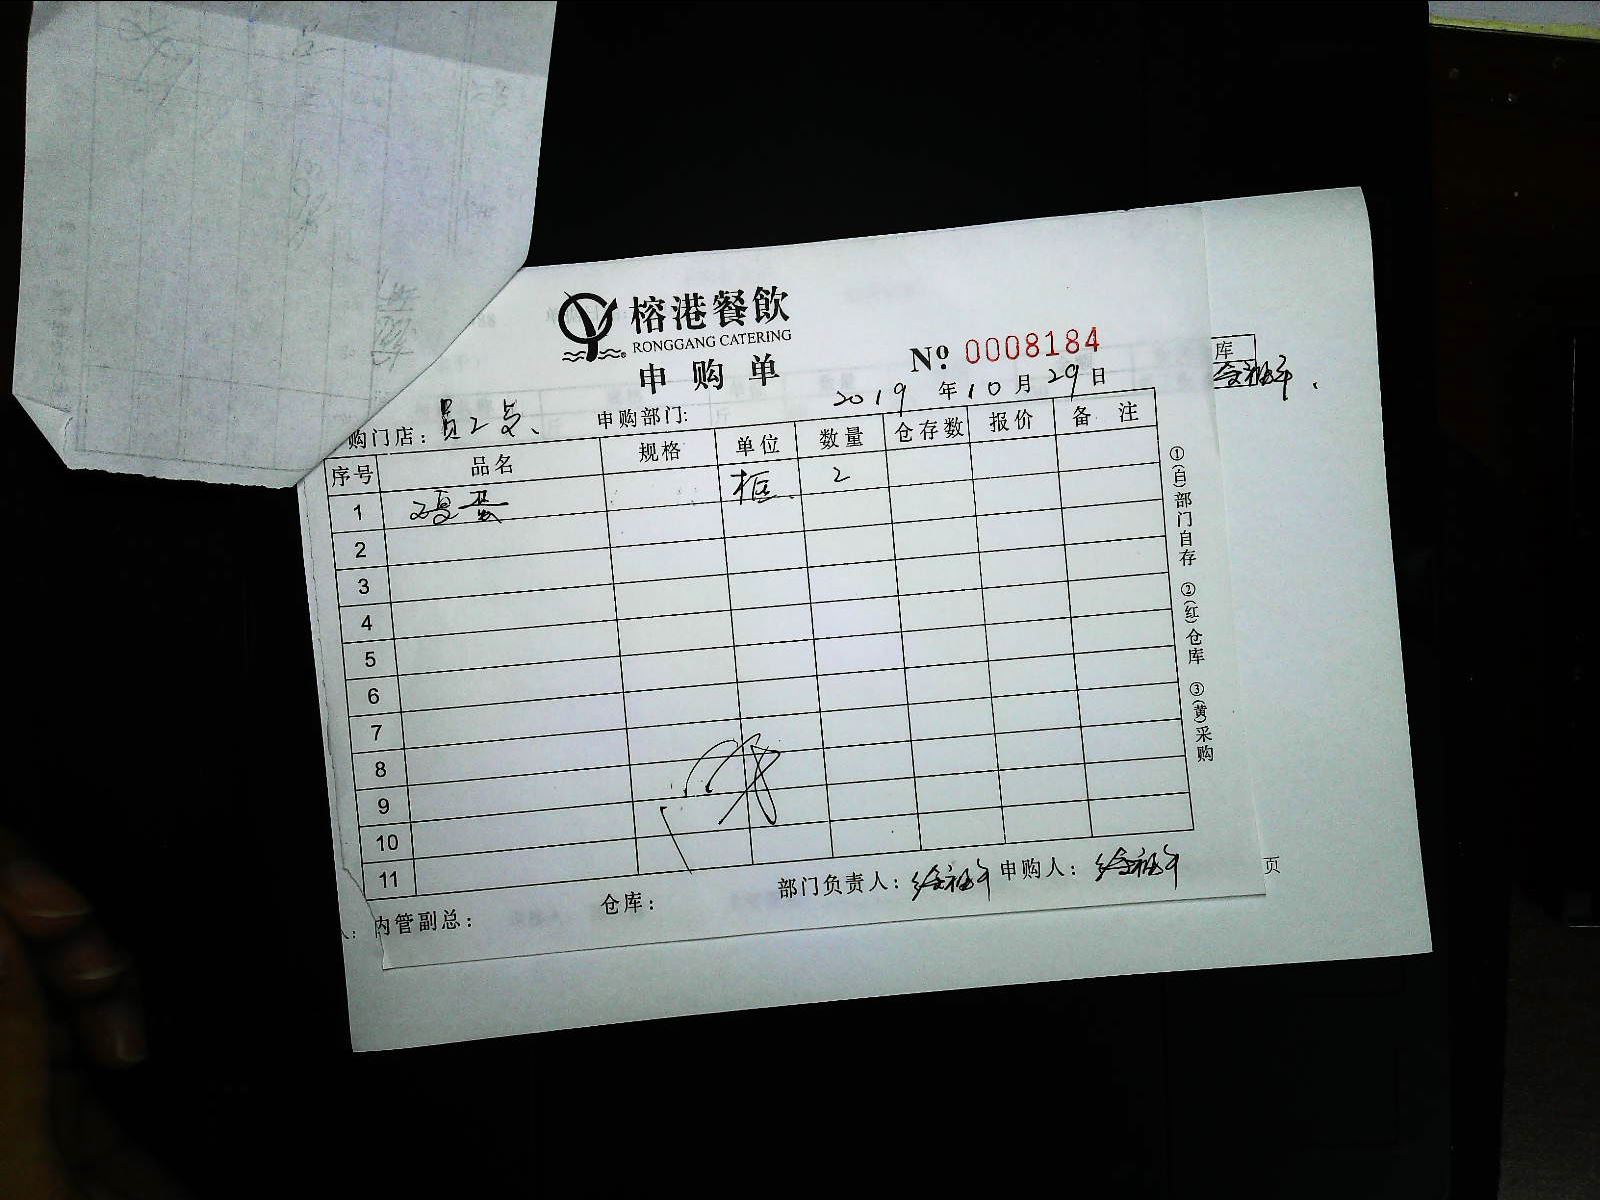 榕港餐飲
RONGGANG CATERING
申购单
№ 0008184
2019年10月29日
购门店：员工食、 申购部门:
序号 品名 规格 单位 数量 仓存数 报价 备注
1 鸡蛋 框 2
2
3
4
5
6
7
8
9
10
11
内管副总： 仓库： 部门负责人：徐祖年 申购人：徐祖年
①(白)部门自存 ②(红)仓库 ③(黄)采购
库
页